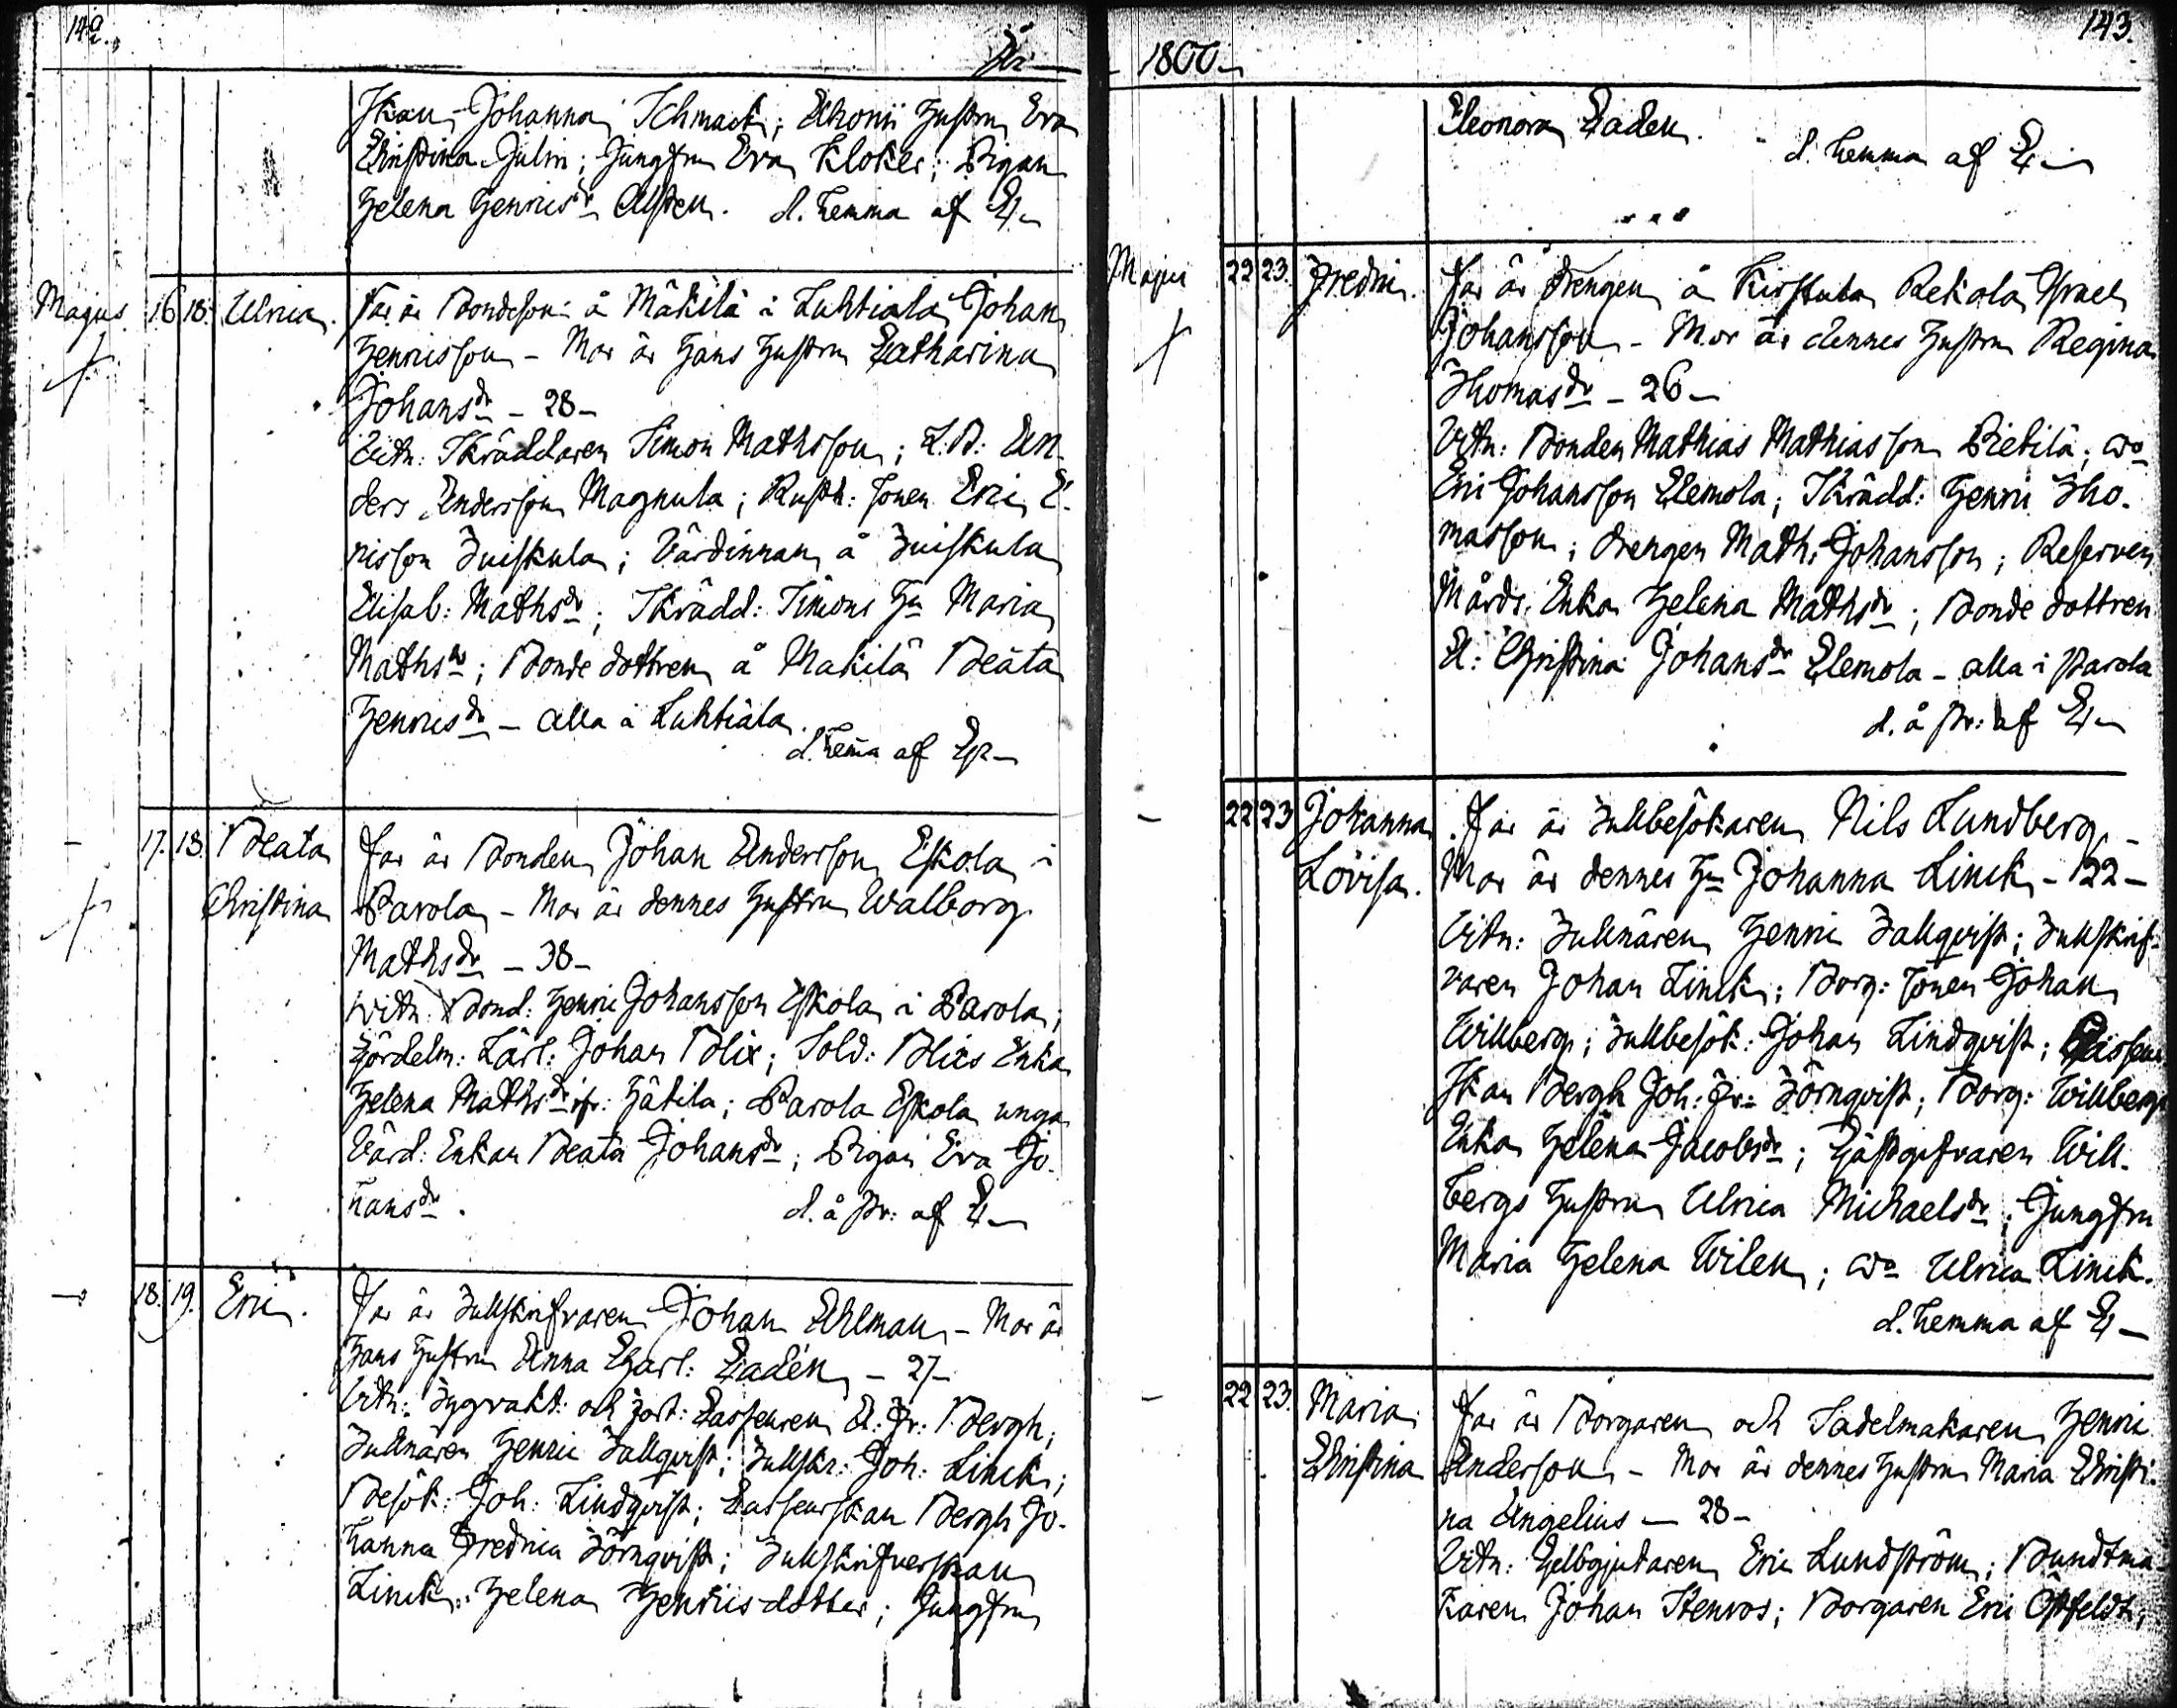 142.
År
skan Johanna Schmack; Ahonii Hustru Eva
Christina Julin; Jungfru Eva Kloker; Pigan
Helena Henricsdr Alsten. d. hemma af
Majus 16 18. Ulrica. Far är Bondeson å Mäkilä i Luhtiala Johan
Henricsson - Mor är Hans Hustru Catharina
Johansdr - 28 -
Vitn: Skräddaren Simon Mathsson; L.B: An-
ders Andersson Magnula; Rusth: sonen Eric E-
ricsson Zuiskula; Värdinnan å Zuiskula
Elisab: Mathsdr; Skrädd: Simons Hu Maria
Mathsdr; Bonde dottren å Makilä Beata
Henricsdr - alla i Luhtiala.
d. hema af
17. 18. Beata
Christina
Far är Bonden Johan Andersson Eskola i
Parola - Mor är dennes Hustru Walborg
Mathsdr - 38 -
Vitn: Bond: Henric Johansson Eskola i Parola;
Johan Blix; Sold: Blixs Enka
Helena Mathsdr ifr: Hätila; Parola Eskola unga
Värd: Enkan Beata Johansdr; Pigan Eva Jo-
hansdr.
d. å Pr: af
18. 19. Eric. Far är Tullskrifvaren Johan Ahlman - Mor är
Hans Hustru Anna Charl: Cadén - 27 -
Vitn: Tygvakt: och Fort: Casseuren A: Fr: Bergh;
Tullnären Henric Tallqvist; Tullskr: Joh: Linck;
Besök: Joh: Lindqvist; Casseurskan Bergh Jo-
hanna Fredrica Törnqvist; Tullskrifverskan
Linck: Helena Henricsdotter; Jungfru
143.
1800
Eleonora Caden.
d. hemma af
Majus 22 23. Fredric. Far är drengen å Kirstula Rekola Israel
Johansson - Mor är dennes Hustru Regina
Thomasdr - 26 -
Vitn: Bonden Mathias Mathiasson Pietilä; do
Eric Johansson Clemola; Skrädd: Henric Tho-
masson; drengen Math: Johansson; Reserven
Mårds Enka Helena Mathsdr; Bonde dottren
A: Christina Johansdr Clemola - alla i Parola
d. å Pr: af
22 23 Johanna
Lovisa.
Far är Tullbesökaren Nils Lundberg -
Mor är dennes Hu Johanna Linck - 22 -
Vitn: Tullnären Henric Tallqvist; Tullskrif-
varen Johan Linck; Borg: sonen Johan
Willberg; Tullbesök: Johan Lindqvist; Casseur
skan Bergh Joh: Fr: Törnqvist; Borg: Willbergs
Enka Helena Jacobsdr; Gästgifvaren Will-
bergs Hustru Ulrica Michaelsdr; Jungfru
Maria Helena Wilen; do Ulrica Linck.
d. hemma af
22 23. Maria
Christina
Far är Borgaren och Sadelmakaren Henric
Anderson - Mor är dennes Hustru Maria Christi-
na Angelius - 28 -
Vitn: Gelbgjutaren Eric Lundström; Bundtma-
karen Johan Stenros; Borgaren Eric Östfeldt;